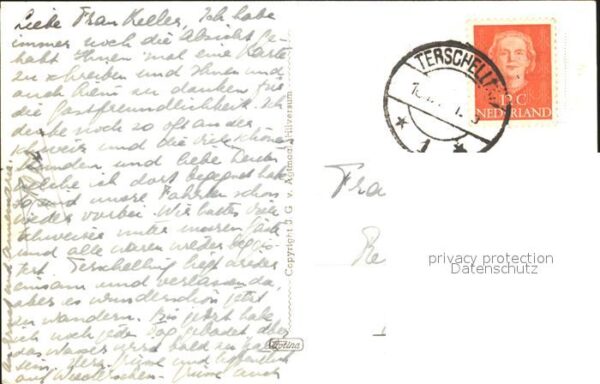 Liebe Frau Keller, Ich habe
immer noch die Absicht ge-
habt Ihnen mal eine Karte
zu schreiben und Ihnen und
auch Herrn zu danken für
die Gastfreundlichkeit. Ich
denke noch so oft an der
Schweiz und die viele schöne
Stunden und liebe Leute
welche ich dort begegnet habe
so sind unsere Fahrten schon
wieder vorbei. Wir hatten viele
Schweizer unter unseren Gäste
und alle waren wieder begeis-
tert. Terschelling liegt wieder
einsam und verlassen da,
aber es wunderschön jetzt
zu wandern. Bis jetzt habe
ich noch jede Tag gebadet aber
das Wasser wird bald zu kalt
sein. Herz. Grüsse und hoffentlich
auf Wiedersehen. Grüsse auch
Copyright J. G. v. Agtmaal, Hilversum
TERSCHELLING
1
12 C
NEDERLAND
Fra
Re
privacy protection
Datenschutz